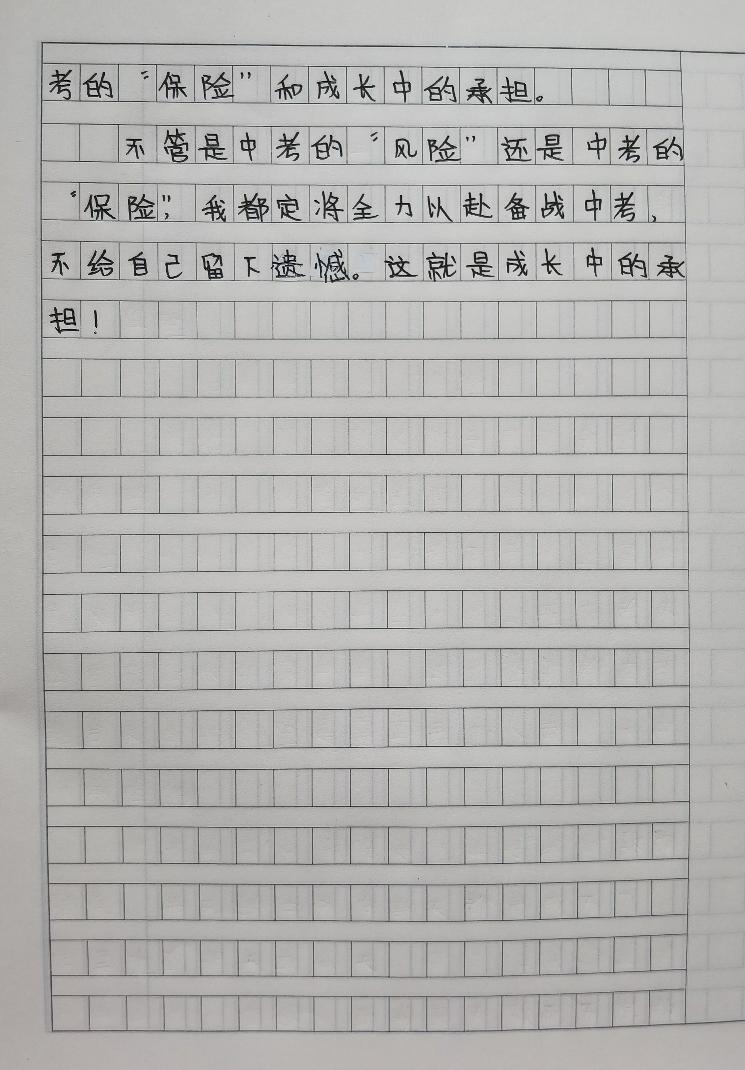 考的“保险”和成长中的承担。
不管是中考的“风险”还是中考的
“保险”，我都定将全力以赴备战中考，
不给自己留下遗憾。这就是成长中的承
担！